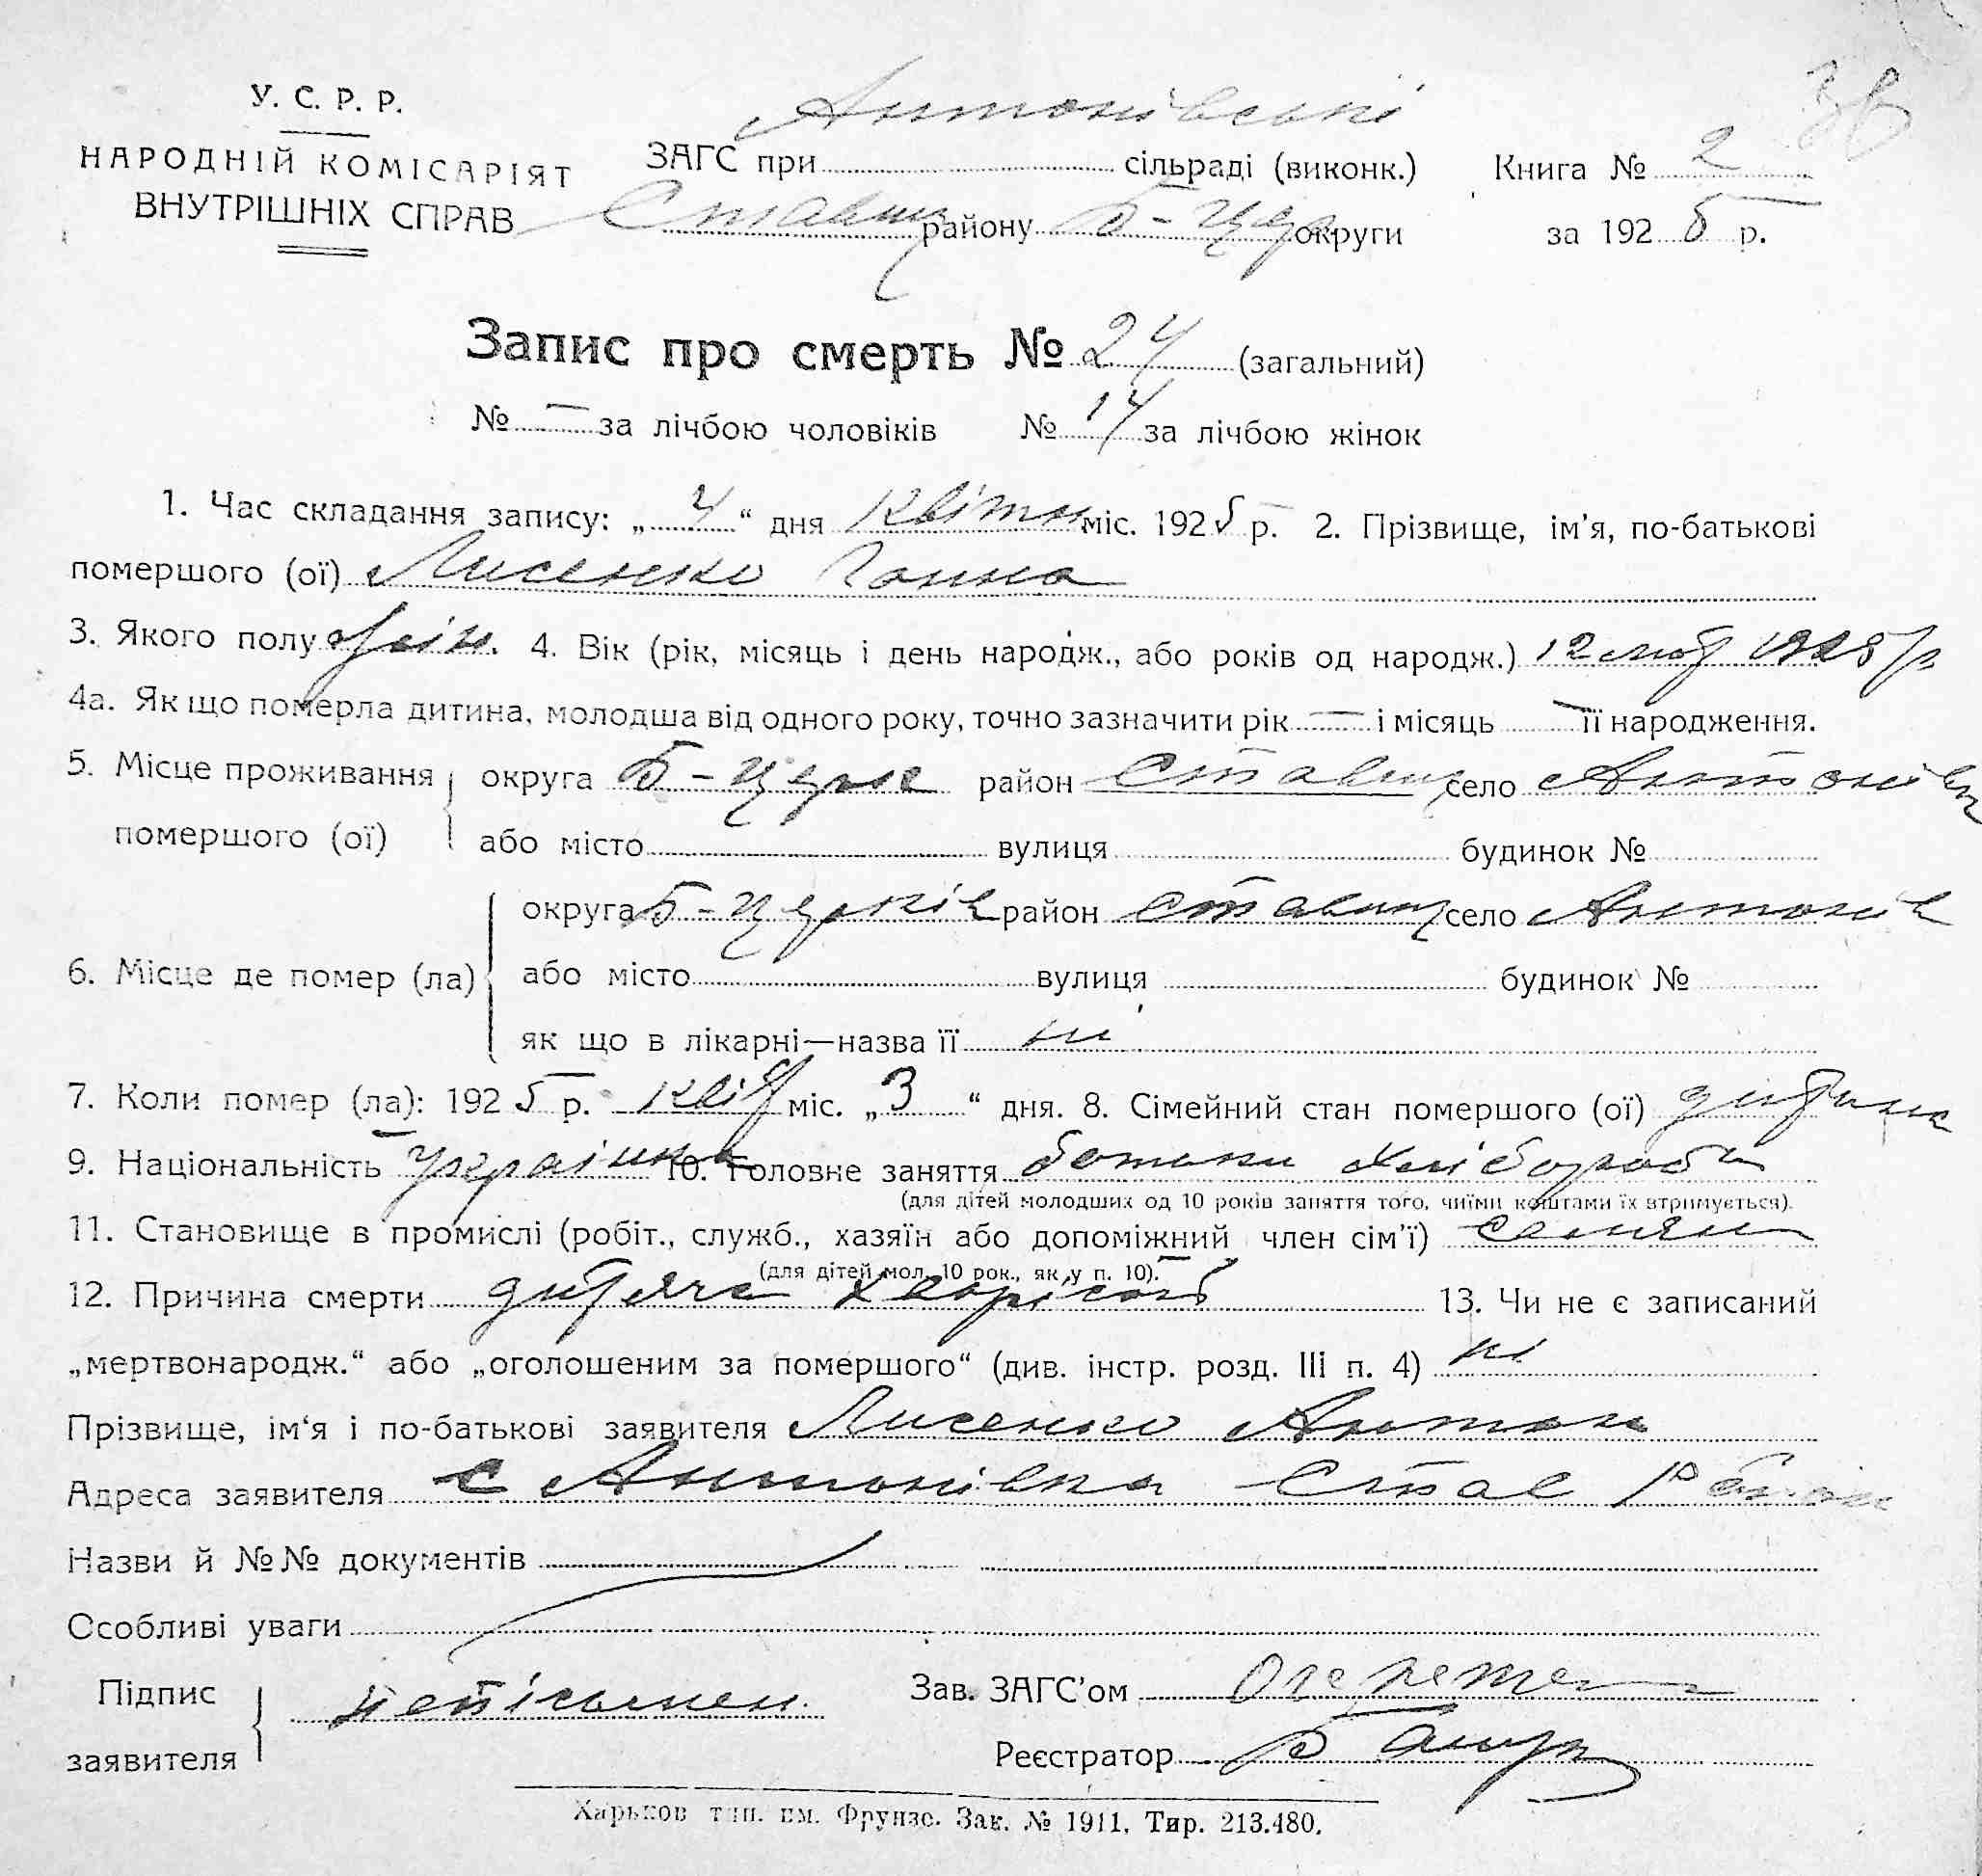 Антонівські 38
У. С. Р. Р.
НАРОДНІЙ КОМІСАРІЯТ
ВНУТРІШНІХ СПРАВ
ЗАГС при сільраді (виконк.) Книга № 2
Ставищ району Б-Церк округи за 1925 р.
Запис про смерть № 24 (загальний)
№ — за лічбою чоловіків № 14 за лічбою жінок
1. Час складання запису: „4“ дня Квітн міс. 1925 р. 2. Прізвище, ім'я, по-батькові
помершого (ої) Лисенко Ганна
3. Якого полу жін. 4. Вік (рік, місяць і день народж., або років од народж.) 12 лют 1925 р
4а. Як що померла дитина, молодша від одного року, точно зазначити рік — і місяць — її народження.
5. Місце проживання помершого (ої) округа Б-Церк район Ставищ село Антонівк
або місто вулиця будинок №
6. Місце де помер (ла) округа Б-Церків район Ставищ село Антонів
або місто вулиця будинок №
як що в лікарні—назва її ні
7. Коли помер (ла): 1925 р. Квіт міс. „3“ дня. 8. Сімейний стан помершого (ої) дитина
9. Національність Українка 10. Головне заняття батьки хлібороби
(для дітей молодших од 10 років заняття того, чиїми коштами їх втримується).
11. Становище в промислі (робіт., служб., хазяїн або допоміжний член сім'ї) селяни
(для дітей мол. 10 рок., як у п. 10).
12. Причина смерти дитяча хворість 13. Чи не є записаний
„мертвонародж.“ або „оголошеним за помершого“ (див. інстр. розд. III п. 4) ні
Прізвище, ім'я і по-батькові заявителя Лисенко Антон
Адреса заявителя с Антонівка Став Район
Назви й №№ документів
Особливі уваги
Підпис заявителя непісьмен. Зав. ЗАГС'ом
Реєстратор
Харьков тип. им. Фрунзе. Зак. № 1911. Тир. 213.480.